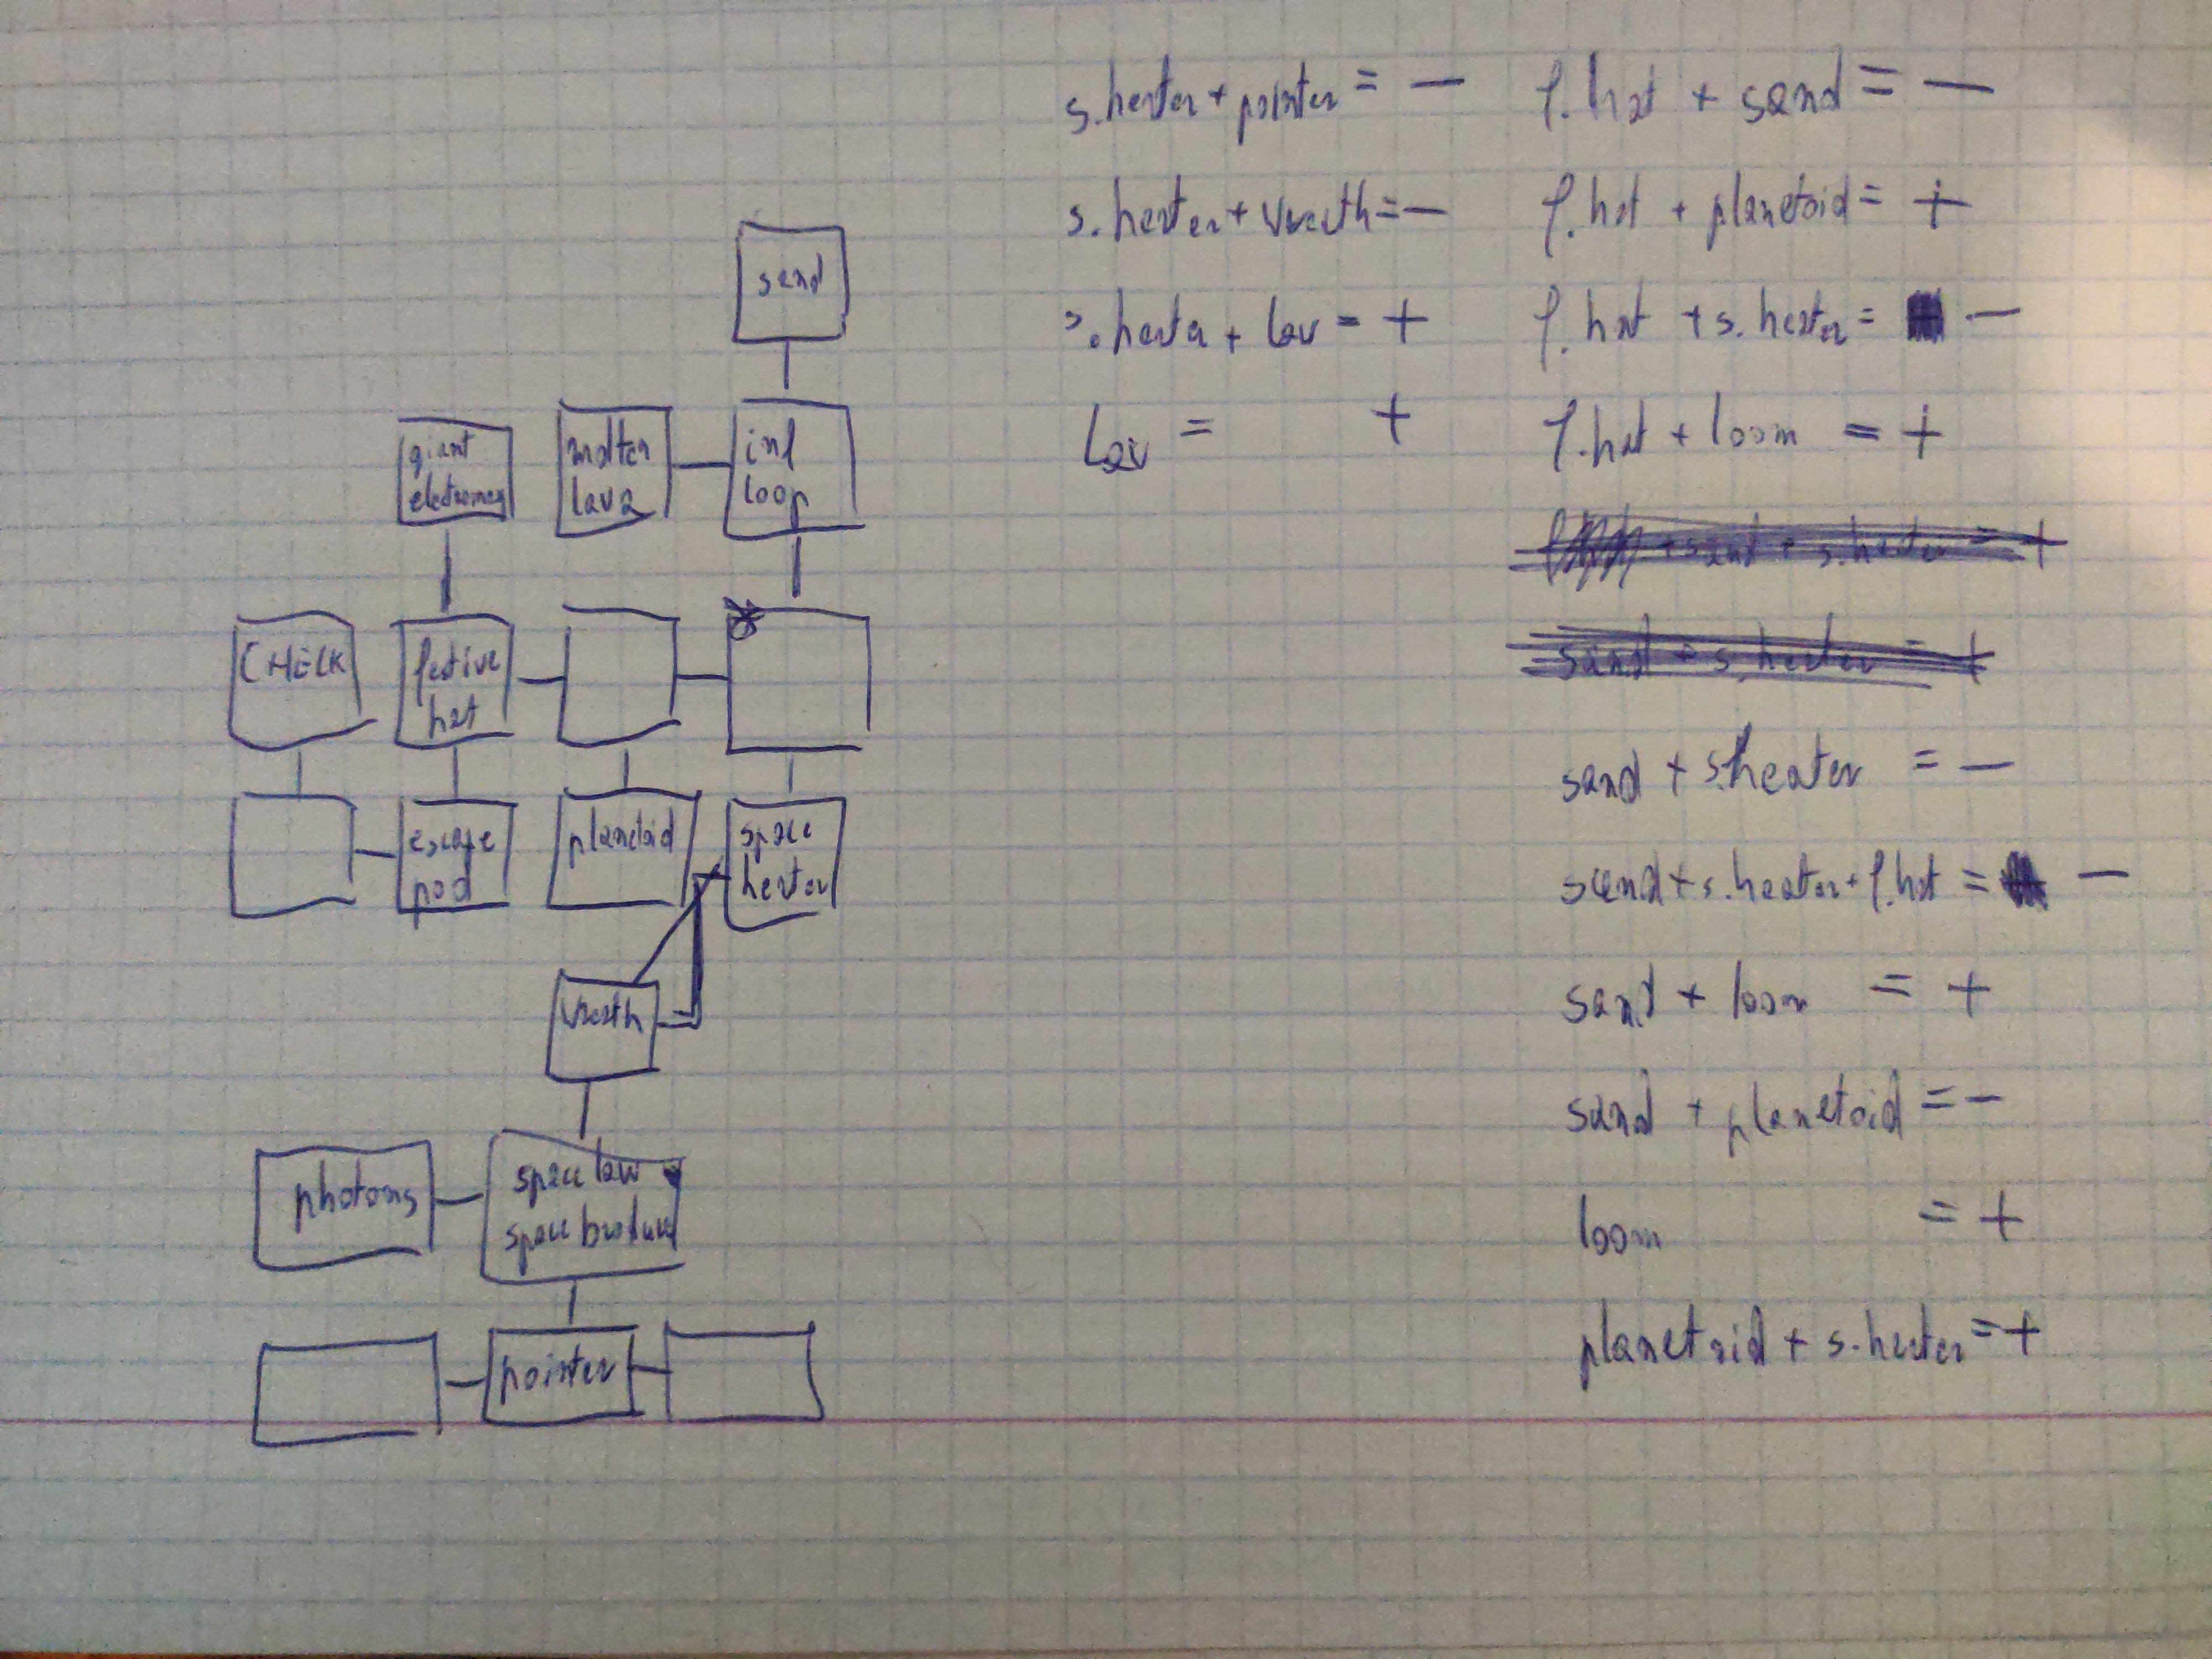 sand
giant
electromag
molten
lava
inf
loop
CHECK
festive
hat
escape
pod
planetoid
space
heater
wreath
photons
space law
space brochure
pointer
s.heater + pointer = −
s.heater + wreath = −
s.heater + law = +
law = +
f.hat + sand = −
f.hat + planetoid = +
f.hat + s.heater = −
f.hat + loom = +
+ sand + s.heater = +
sand + s.heater = +
sand + s.heater = −
sand + s.heater + f.hat = −
sand + loom = +
sand + planetoid = −
loom = +
planetoid + s.heater = +